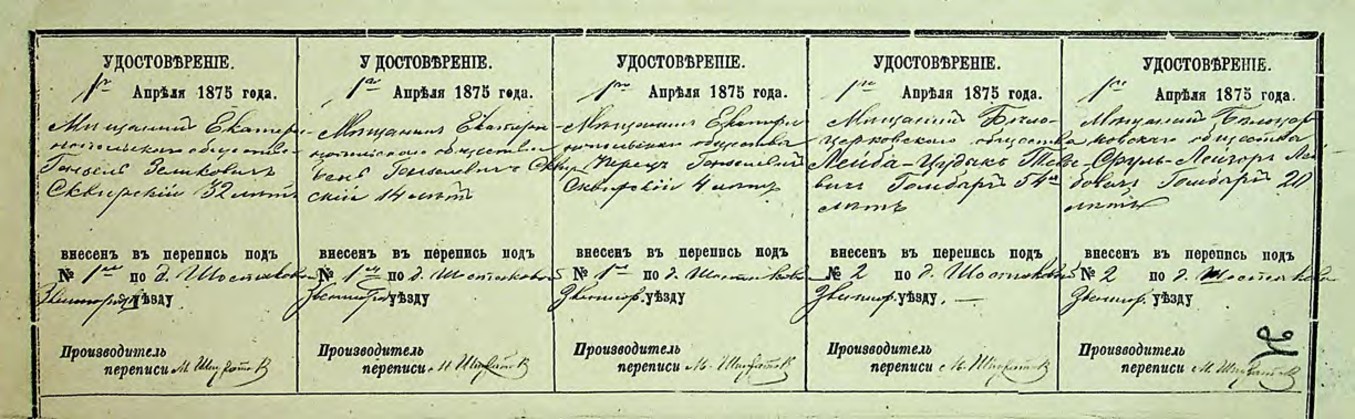 УДОСТОВѢРЕНІЕ.
1го Апрѣля 1875 года.
Мѣщанинъ Екатери-
нопольскаго общества
Гензель Зеликовичъ
Сквирскій 32 лѣтъ
внесенъ въ перепись подъ
№ 1мъ по д. Шостаковой
Звенигород. уѣзду
Производитель
переписи М.
У ДОСТОВѢРЕНІЕ.
1го Апрѣля 1875 года.
Мѣщанинъ Екатерин
общества
Гензелевичъ Сквир-
скій 14 лѣтъ
внесенъ въ перепись подъ
№ 1мъ по д. Шостаковой
уѣзду
Производитель
переписи М.
УДОСТОВѢРЕНІЕ.
1го Апрѣля 1875 года.
Мѣщанинъ Екатери-
нопольскаго общества
Перецъ Гензелевичъ
Сквирскій 4 лѣтъ
внесенъ въ перепись подъ
№ 1мъ по д. Шостаковой
Звенигор. уѣзду
Производитель
переписи М.
УДОСТОВѢРЕНІЕ.
1го Апрѣля 1875 года.
Мѣщанинъ Бѣло-
церковскаго общества
Лейба-Цудакъ
Голбарій 54
лѣтъ
внесенъ въ перепись подъ
№ 2 по д. Шостаковой
Звенигор. уѣзду. —
Производитель
переписи М.
УДОСТОВѢРЕНІЕ.
1го Апрѣля 1875 года.
Мѣщанинъ Бѣлоцер-
ковскаго общества
Сруль- Лей-
бовичъ Голбарій 20
лѣтъ
внесенъ въ перепись подъ
№ 2 по д. Шостакова
Звенигор. уѣзду
Производитель
переписи М.